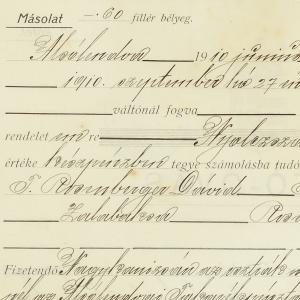 Másolat —.60 fillér bélyeg.
Alsólendva 1910 június
1910. szeptember hó 27
váltónál fogva
rendelet re Nyolcszáz
értéke készpénzben tegye számolásba tudó
T. Rosenberger Dávid
Zalabaksa
Fizetendő Nagykanizsán az osztrák
Alsólendvai Takarékpénzt